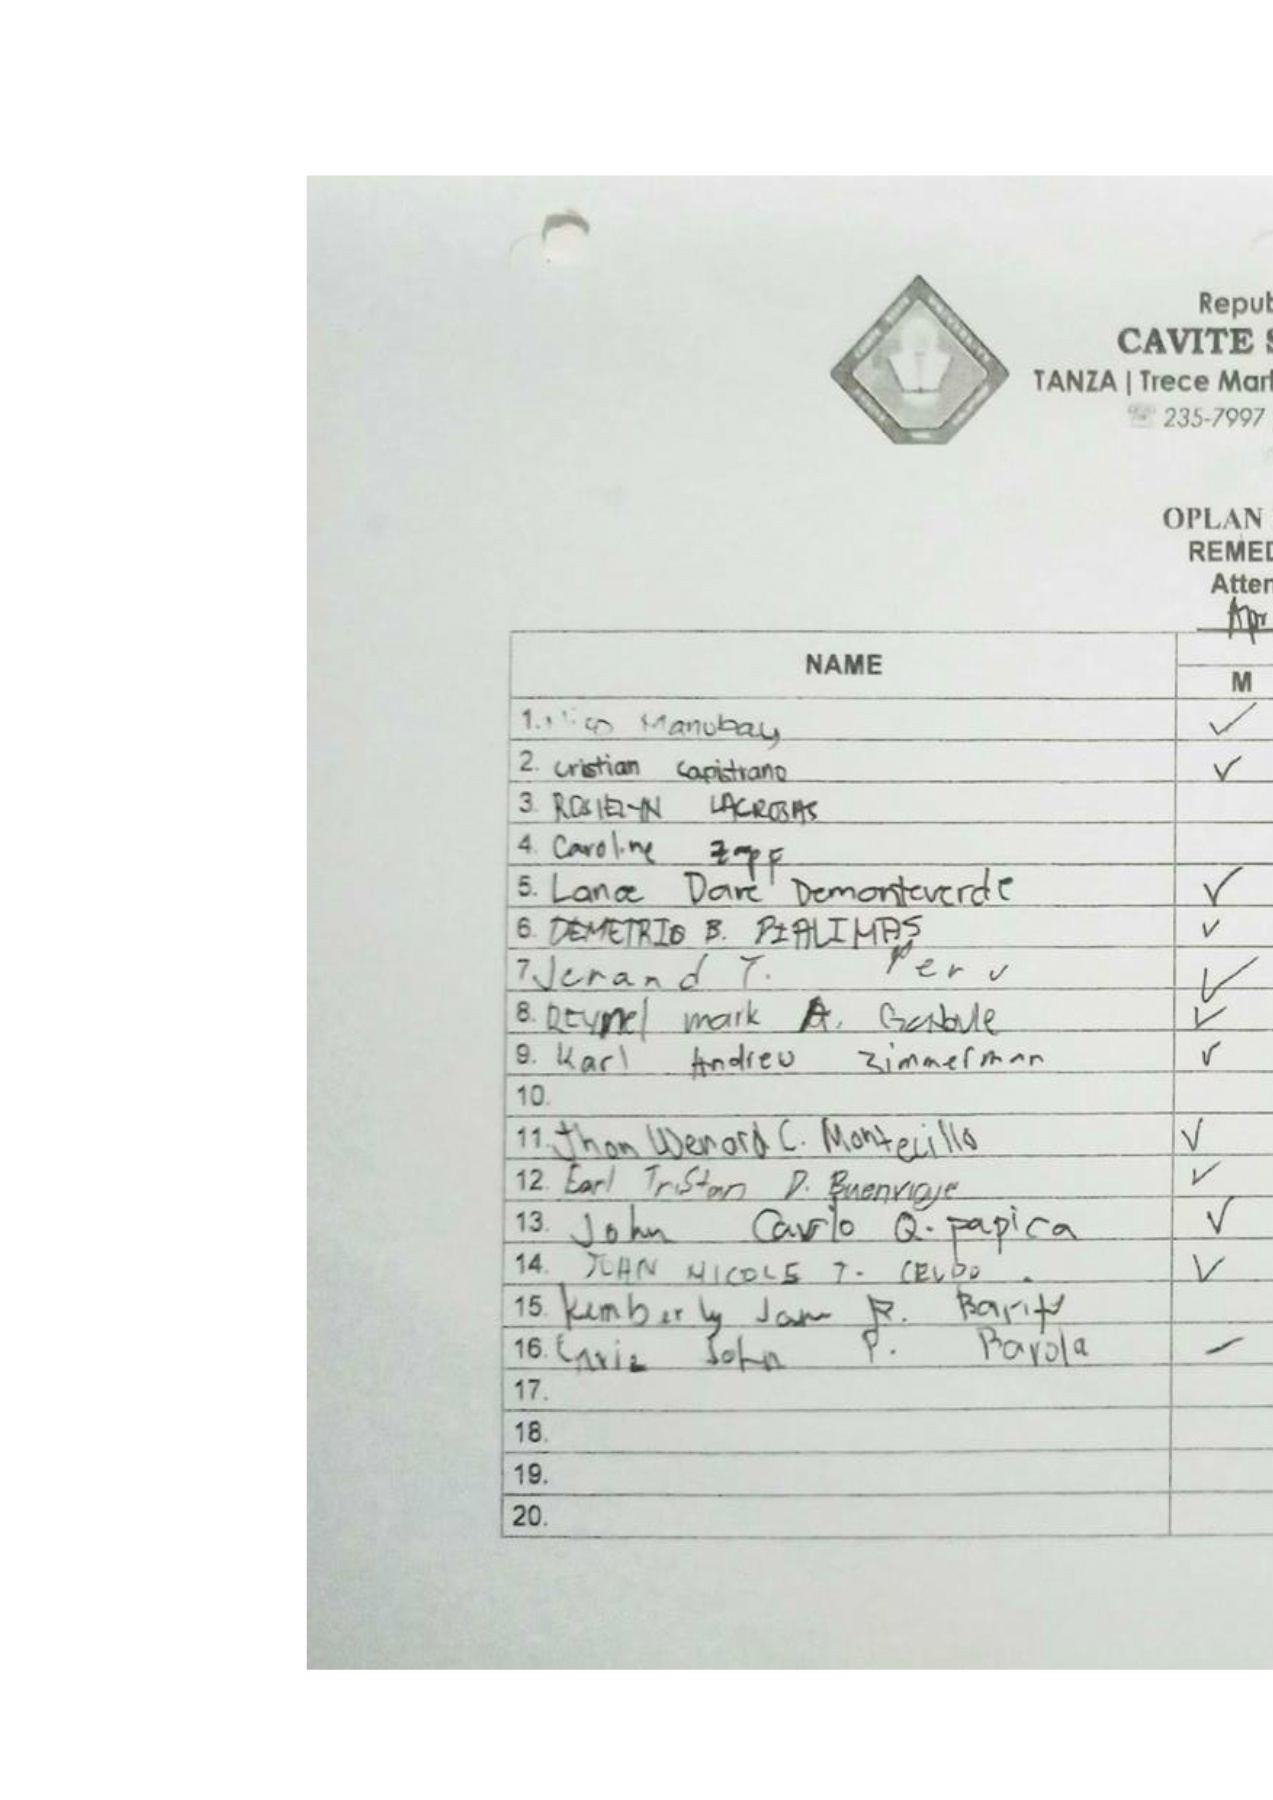 Repub
CAVITE S
TANZA | Trece Mart
235-7997
OPLAN
REMED
Atten
Apr
NAME
M
1. Manubay
2. cristian capistrano
3. LACROBAS
4. Caroline
5. Lance Dave Demonteverde
6. DEMETRIO B.
7. Jerand T.
8. Reymel mark A.
9. Karl Andrew Zimmerman
10.
11. Jhon Wenard C. Montecillo
12. Earl Tristan D. Buenviaje
13. John Carlo Q. papica
14. NICOLE T.
15. Kimberly
16. John P. Barola
17.
18.
19.
20.